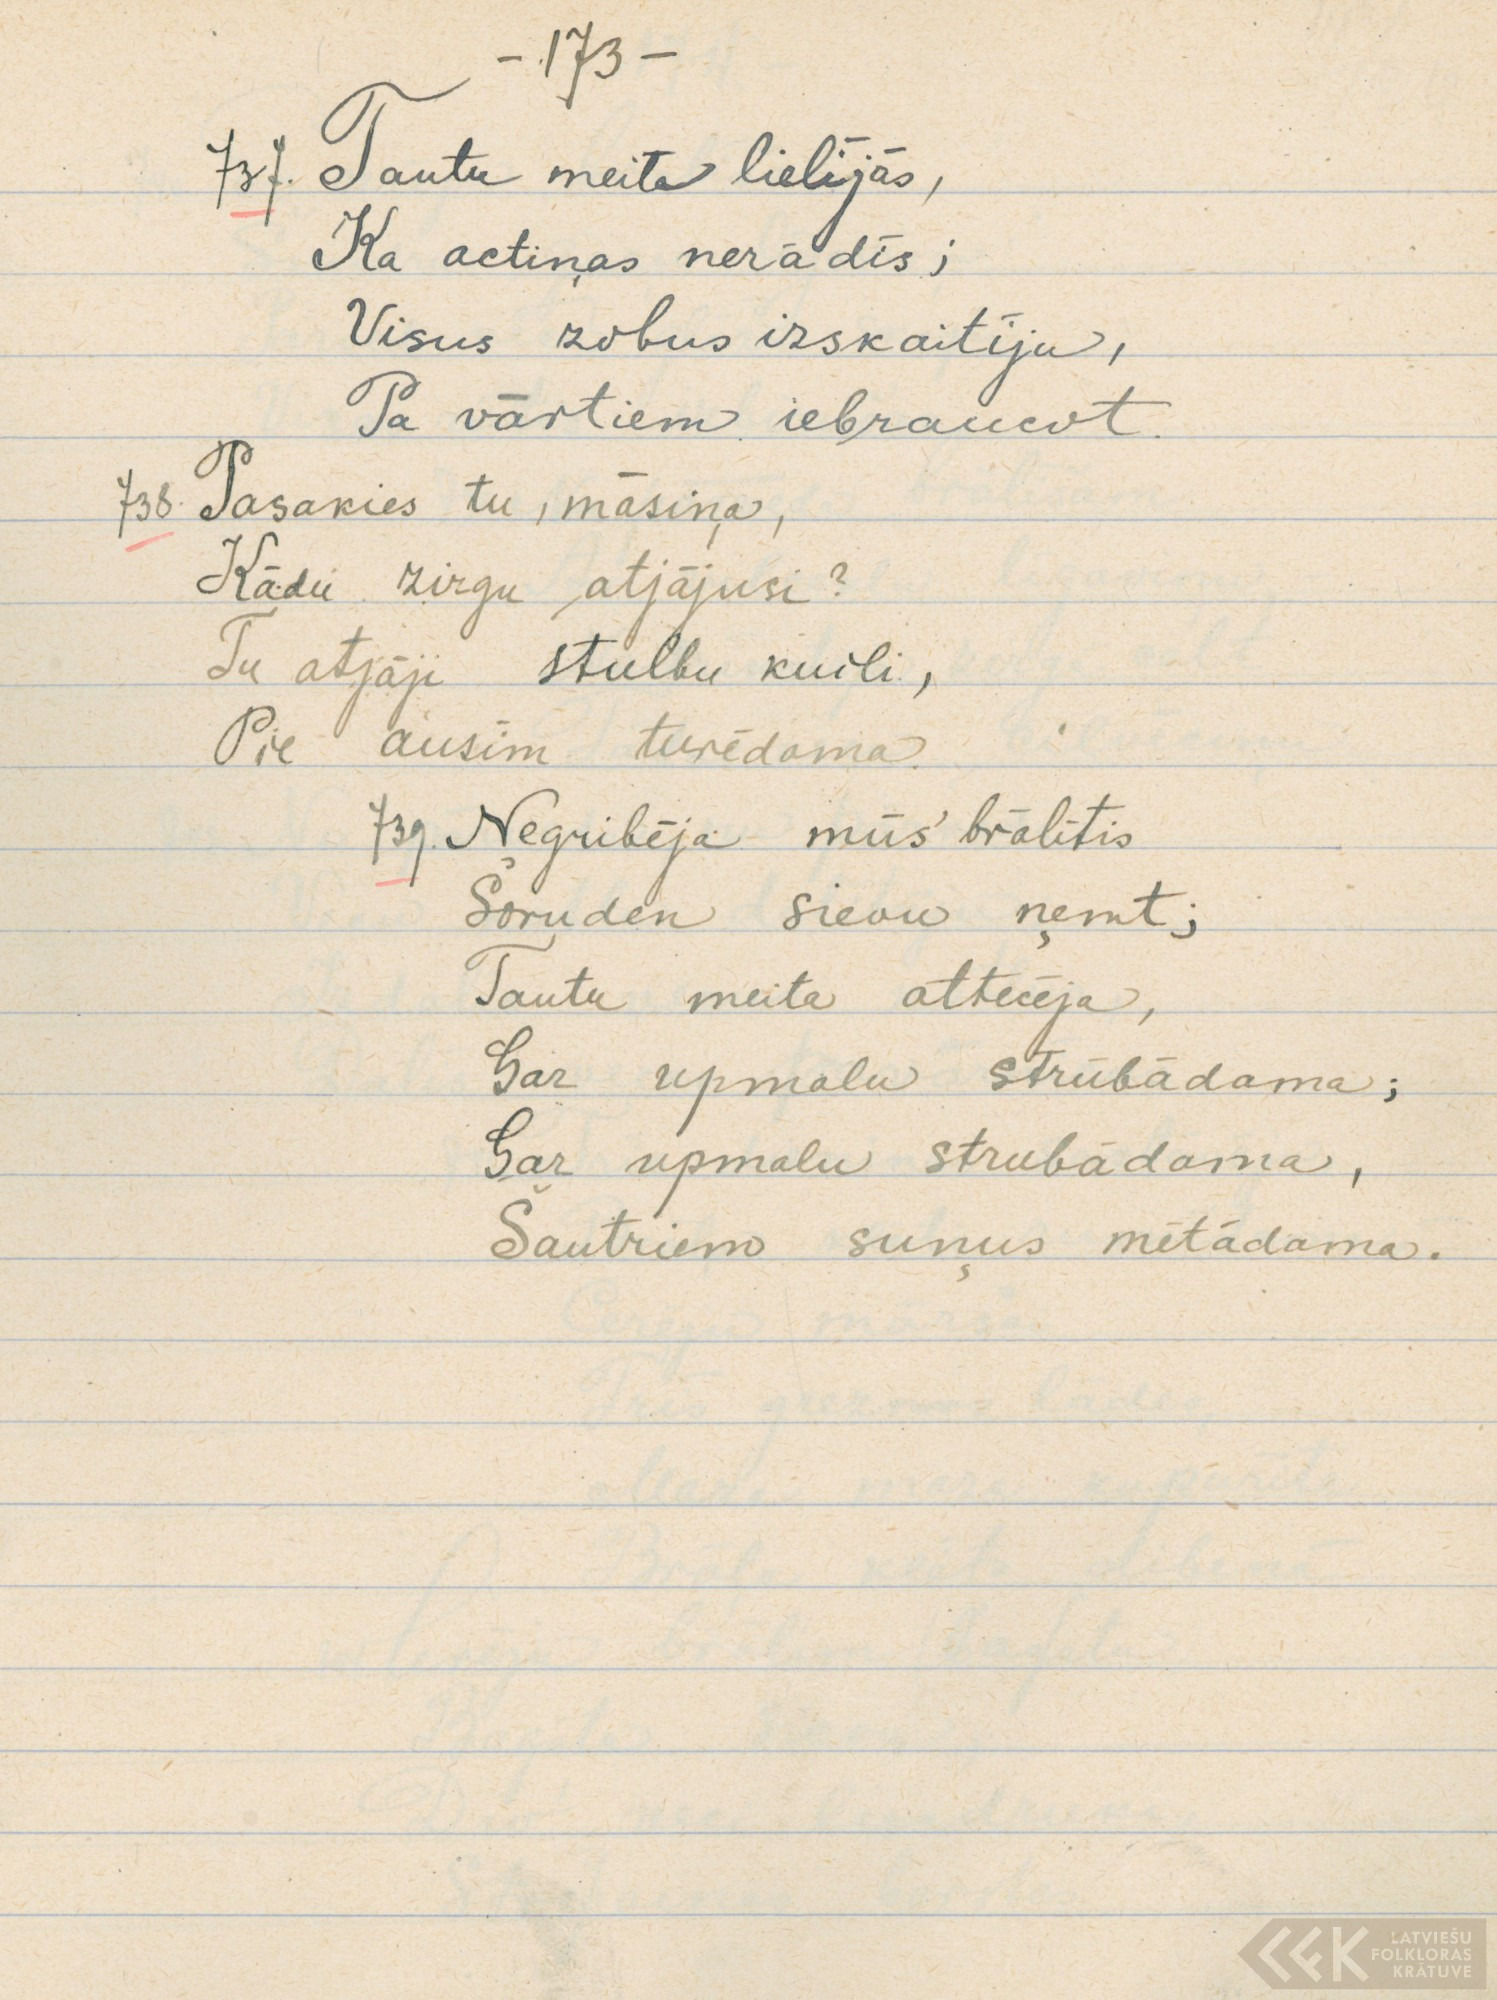 - 173 -
737. Tautu meita lielījās,
Ka actiņas nerādīs;
Visus zobus izskaitīju,
Pa vārtiem iebraucot.
738. Pasakies tu, māsiņa,
Kādu zirgu atjājusi?
Tu atjāji stulbu kuili,
Pie ausīm turēdama.
739. Negribēja mūs' brālītis
Šoruden sievu ņemt;
Tautu meita attecēja,
Gar upmalu strūbādama;
Gar upmalu strubādama,
Šautriem suņus mētādama.
LATVIEŠU
FOLKLORAS
KRĀTUVE